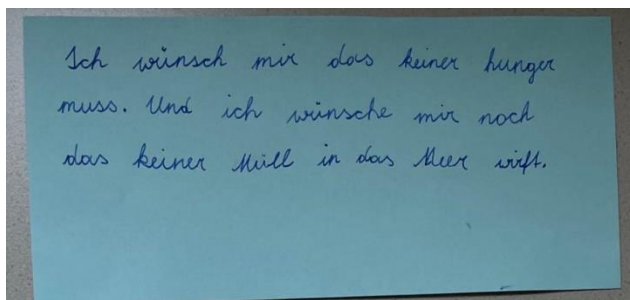 Ich wünsch mir das keiner hunger
muss. Und ich wünsche mir noch
das keiner Müll in das Meer wirft.